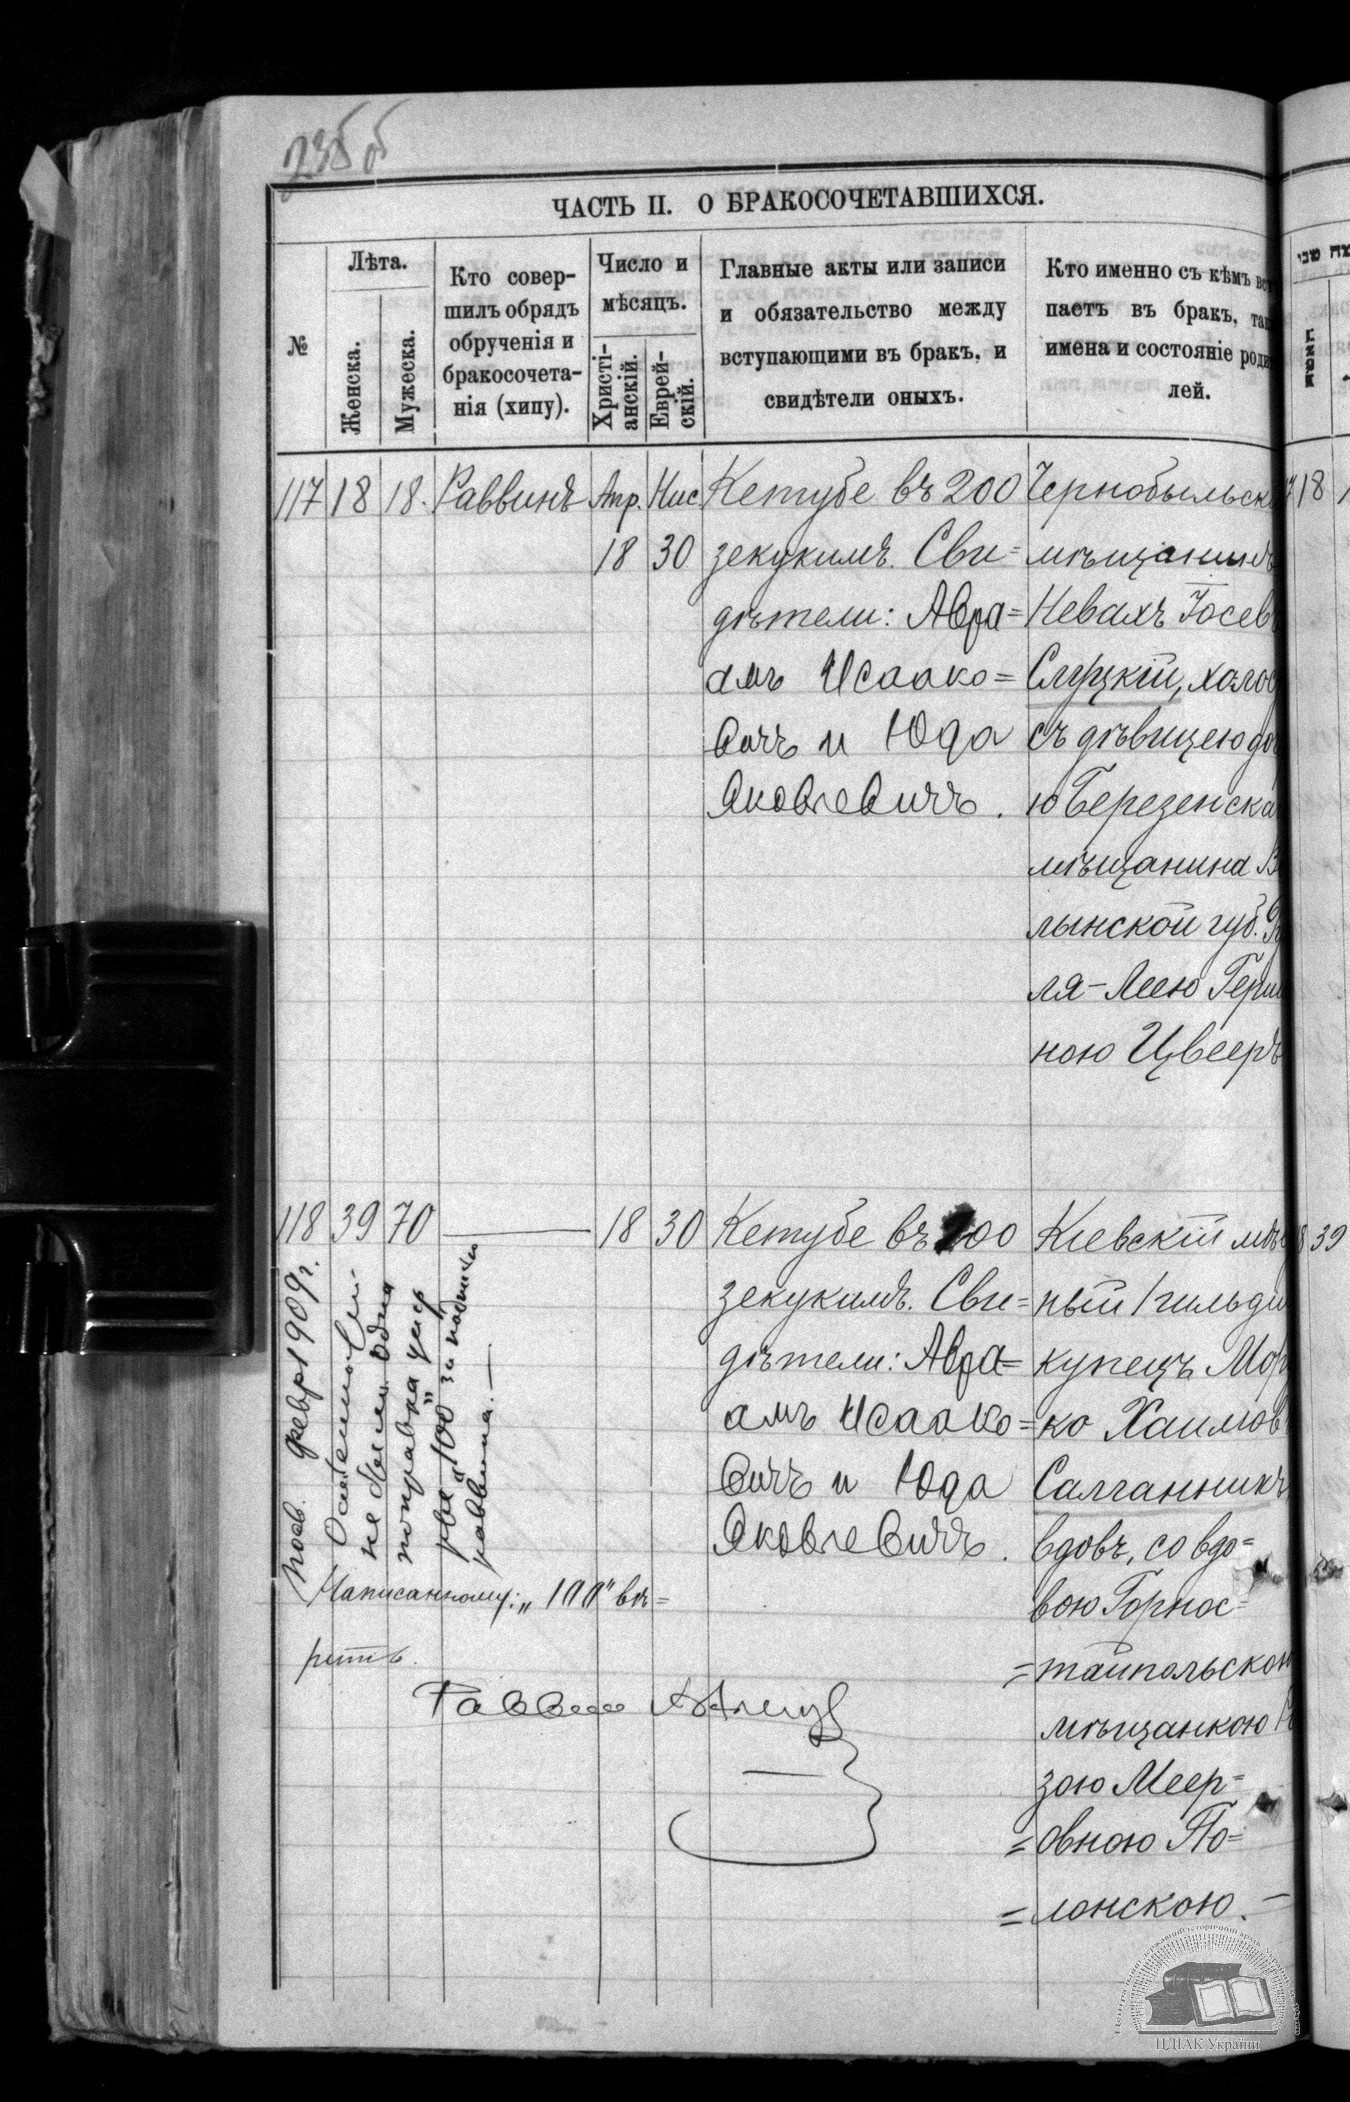 235 об
ЧАСТЬ II. О БРАКОСОЧЕТАВШИХСЯ.
№
Лѣта.
Женска.
Мужеска.
Кто совер-
шилъ обрядъ
обрученія и
бракосочета-
нія (хипу).
Число и
мѣсяцъ.
Христі-
анскій.
Еврей-
скій.
Главные акты или записи
и обязательство между
вступающими въ бракъ, и
свидѣтели оныхъ.
Кто именно съ кѣмъ вст
паетъ въ бракъ, так
имена и состояніе роди
лей.
117 18 18. Раввинъ Апр. Нис.
18 30
Кетубе въ 200
зекукимъ. Сви=
дѣтели: Авра=
амъ Исаако=
вичъ и Юда
Яковлевичъ.
Чернобыльск
мѣщанинъ
Невахъ Іосев
Слуцкій, холос
съ дѣвицею до
ю Березенска
мѣщанина В
лынской губ. Р
ля-Леею Герш
ною Цвееръ
118 39 70 — 18 30
Кетубе въ 200
зекукимъ. Сви=
дѣтели: Авра=
амъ Исаако=
вичъ и Юда
Яковлевичъ.
Кіевскій мѣс
ный 1 гильдіи
купецъ Мор
ко Хаимов
Салганникъ,
вдовъ, со вдо=
вою Горнос=
=тайпольскою
мѣщанкою Р
зою Меер=
=овною По=
=лонскою.
февр 1909 г.
не
поправка
"100" за подписью
раввина. —
Написанному: "100" вѣ=
рить.
Раввин
18 1
18 39
ЦДІАК України